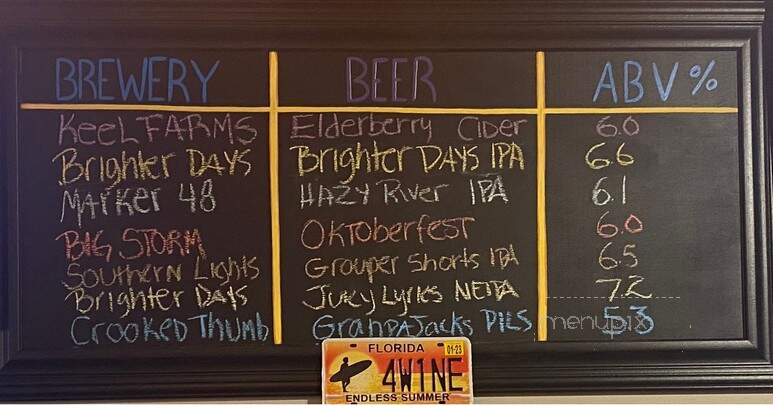 BREWERY BEER ABV%
KEEL FARMS Elderberry Cider 6.0
Brighter DAYS Brighter DAYS IPA 6.6
Marker 48 HAZY River IPA 6.1
BIG STORM Oktoberfest 6.0
Southern Lights Grouper Shorts IPA 6.5
Brighter DAYS Juicy Lyrics NEIPA 7.2
Crooked Thumb GranPA Jacks PILS 5.3
menupix
FLORIDA 01-23
4W1NE
ENDLESS SUMMER